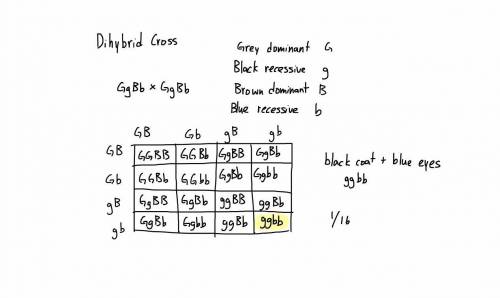 Dihybrid Cross
Grey dominant G
Black recessive g
GgBb × GgBb
Brown dominant B
Blue recessive b
GB Gb gB gb
GB GGBB GGBb GgBB GgBb
Gb GGBb GGbb GgBb Ggbb
gB GgBB GgBb ggBB ggBb
gb GgBb Ggbb ggBb ggbb
black coat + blue eyes
ggbb
1/16